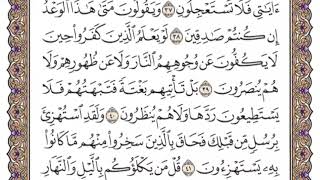 ءَايَٰتِي فَلَا تَسْتَعْجِلُونِ ٣٧ وَيَقُولُونَ مَتَىٰ هَٰذَا ٱلْوَعْدُ
إِن كُنتُمْ صَٰدِقِينَ ٣٨ لَوْ يَعْلَمُ ٱلَّذِينَ كَفَرُوا۟ حِينَ
لَا يَكُفُّونَ عَن وُجُوهِهِمُ ٱلنَّارَ وَلَا عَن ظُهُورِهِمْ وَلَا
هُمْ يُنصَرُونَ ٣٩ بَلْ تَأْتِيهِم بَغْتَةً فَتَبْهَتُهُمْ فَلَا
يَسْتَطِيعُونَ رَدَّهَا وَلَا هُمْ يُنظَرُونَ ٤٠ وَلَقَدِ ٱسْتُهْزِئَ
بِرُسُلٍ مِّن قَبْلِكَ فَحَاقَ بِٱلَّذِينَ سَخِرُوا۟ مِنْهُم مَّا كَانُوا۟
بِهِۦ يَسْتَهْزِءُونَ ٤١ قُلْ مَن يَكْلَؤُكُم بِٱلَّيْلِ وَٱلنَّهَارِ